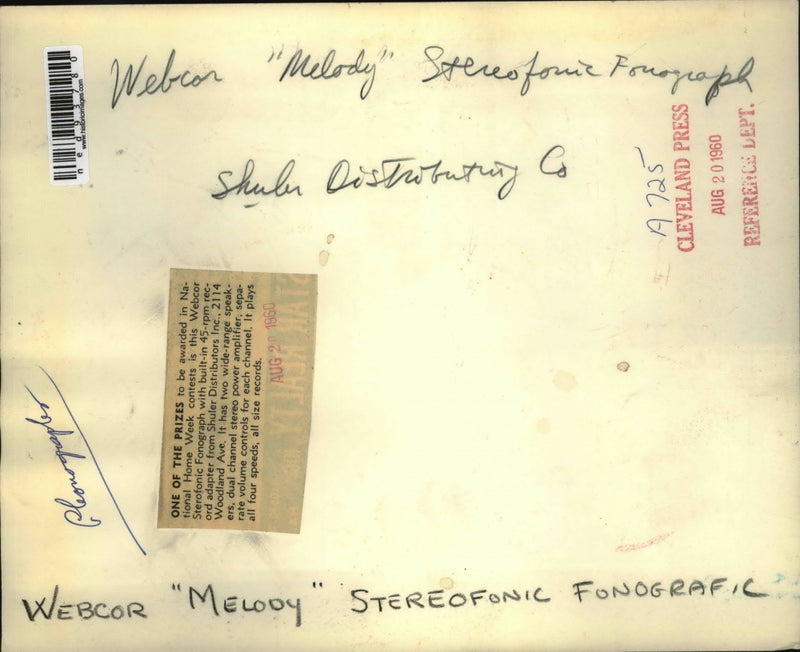 Webcor "Melody" Stereofonic Fonograph
Shuler Distributing Co
A 725
CLEVELAND PRESS
AUG 20 1960
REFERENCE DEPT.
www.historicimages.com
ONE OF THE PRIZES to be awarded in Na-
tional Home Week contests is this Webcor
Sterofonic Fonograph with built-in 45-rpm rec-
ord adapter from Shuler Distributors Inc., 2114
Woodland Ave. It has two wide-range speak-
ers, dual channel stereo power amplifier, sepa-
rate volume controls for each channel. It plays
all four speeds, all size records.
AUG 20 1960
Phonographs
WEBCOR "MELODY" STEREOFONIC FONOGRAFIC